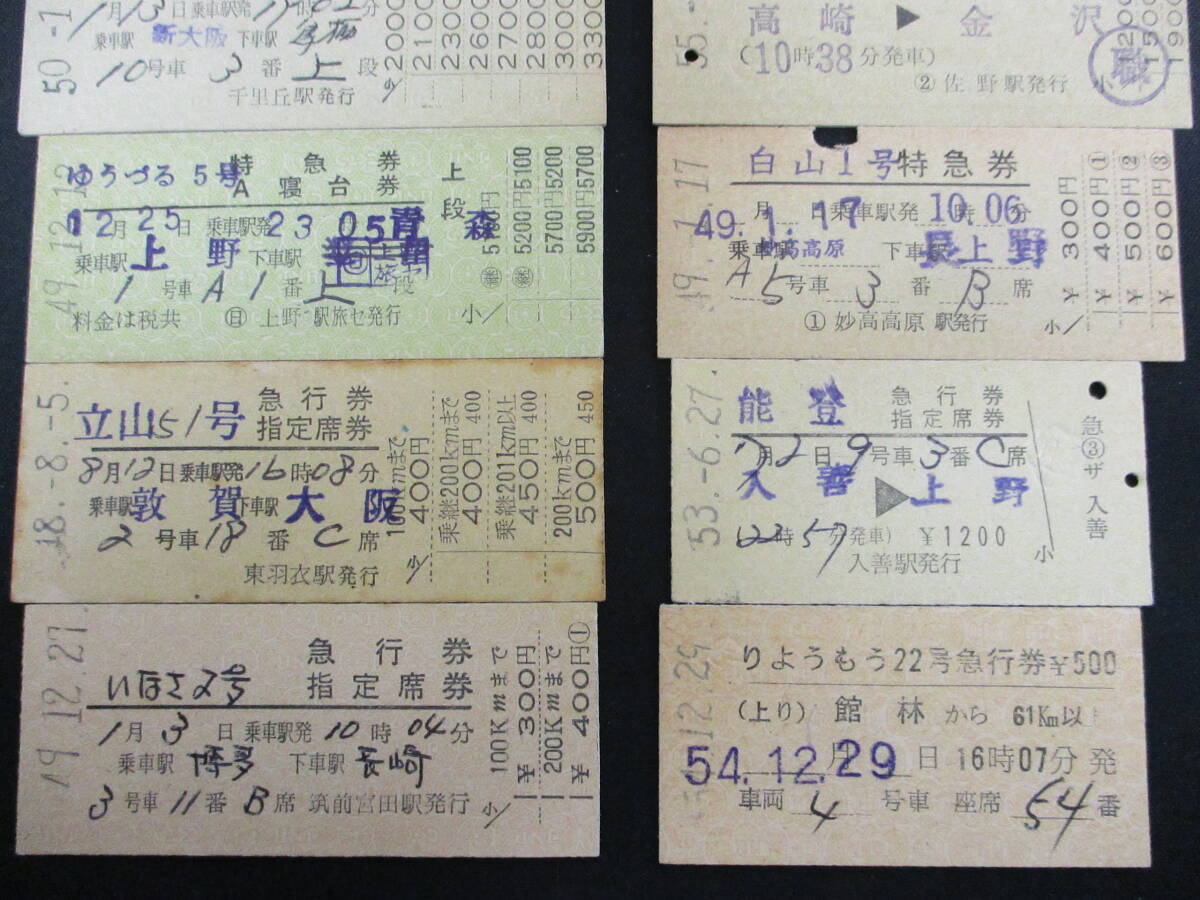 50-1
1月13日乗車駅発19時02分
乗車駅 新大阪 下車駅
10号車 3番上段
千里丘駅発行
小/
2000
2100
2300
2600
2700
2800
3000
3300
ゆうづる5号
特急券
A寝台券
上段
12月25日乗車駅発23 05 青森
乗車駅 上野 下車駅
1号車A1番上段
料金は税共 日 上野駅旅セ発行 小/
49.12.12
5200円5100
5700円5200
5900円5700
立山51号
急行券
指定席券
8月12日乗車駅発16時08分
乗車駅 敦賀 下車駅 大阪
2号車18番C席
東羽衣駅発行 小/
48.-8.-5.
100kmまで 400円
乗継200kmまで 400円 400
乗継201km以上 450円 400
200kmまで 500円 450
いなさ2号
急行券
指定席券
1月3日乗車駅発10時04分
乗車駅 博多 下車駅 長崎
3号車11番B席 筑前宮田駅発行 小/
49.12.27
100Kmまで ¥300円
200Kmまで ¥400円①
55.-
高崎▶金沢
(10時38分発車)
②佐野駅発行 小
職
白山1号特急券
49.1.17
月 日乗車駅発10時06分
49.1.17
乗車駅 妙高高原 下車駅 上野
A5号車3番B席
①妙高高原駅発行 小/
¥300円
¥400円①
¥500円②
¥600円③
能登
急行券
指定席券
7月2日9号車3番C席
入善▶上野
(22時57分発車) ¥1200
入善駅発行 小
53.-6.27.
急③ザ入善
りようもう22号急行券¥500
(上り)館林から61Km以上
54.12.29日16時07分発
車両4号車座席54番
12.29